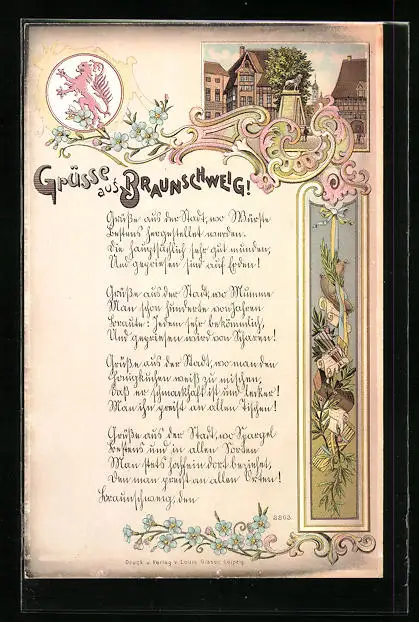 Grüsse aus Braunschweig!
Grüße aus der Stadt, wo Würste
Bestens hergestellet werden.
Die hauptsächlich sehr gut munden,
Und gepriesen sind auf Erden!
Grüße aus der Stadt, wo Mumme
Man schon hunderte von Jahren
Braute: Jedem sehr bekömmlich,
Und gepriesen wird von Scharen!
Grüße aus der Stadt, wo man den
Honigkuchen weiß zu mischen,
Daß er schmackhaft ist und lecker!
Man ihn preist an allen Tischen!
Grüße aus der Stadt, wo Spargel
Bestens und in allen Sorten
Man stets dort beziehet,
Den man preist an allen Orten!
Braunschweig, den
Druck u. Verlag v. Louis Glaser, Leipzig.